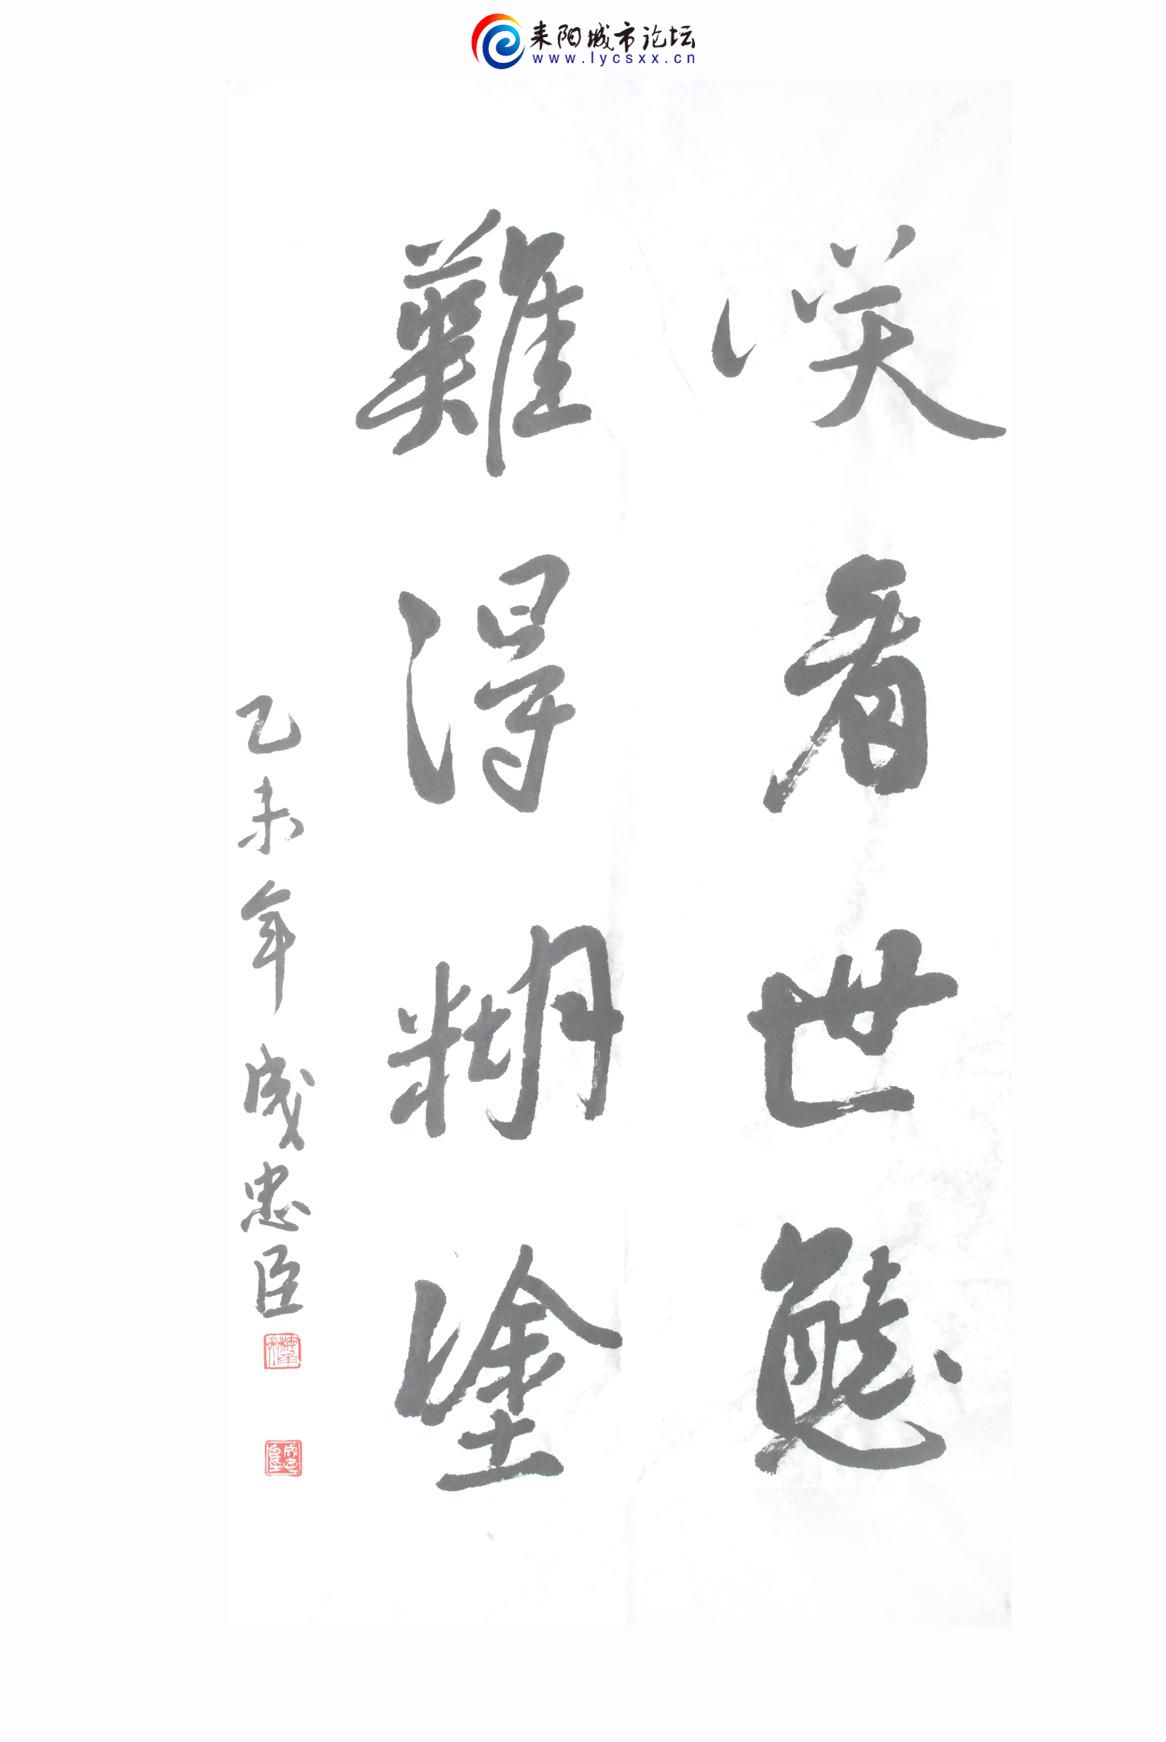 耒阳城市论坛
www.lycsxx.cn
咲看世態
難得糊塗
乙未年成忠臣